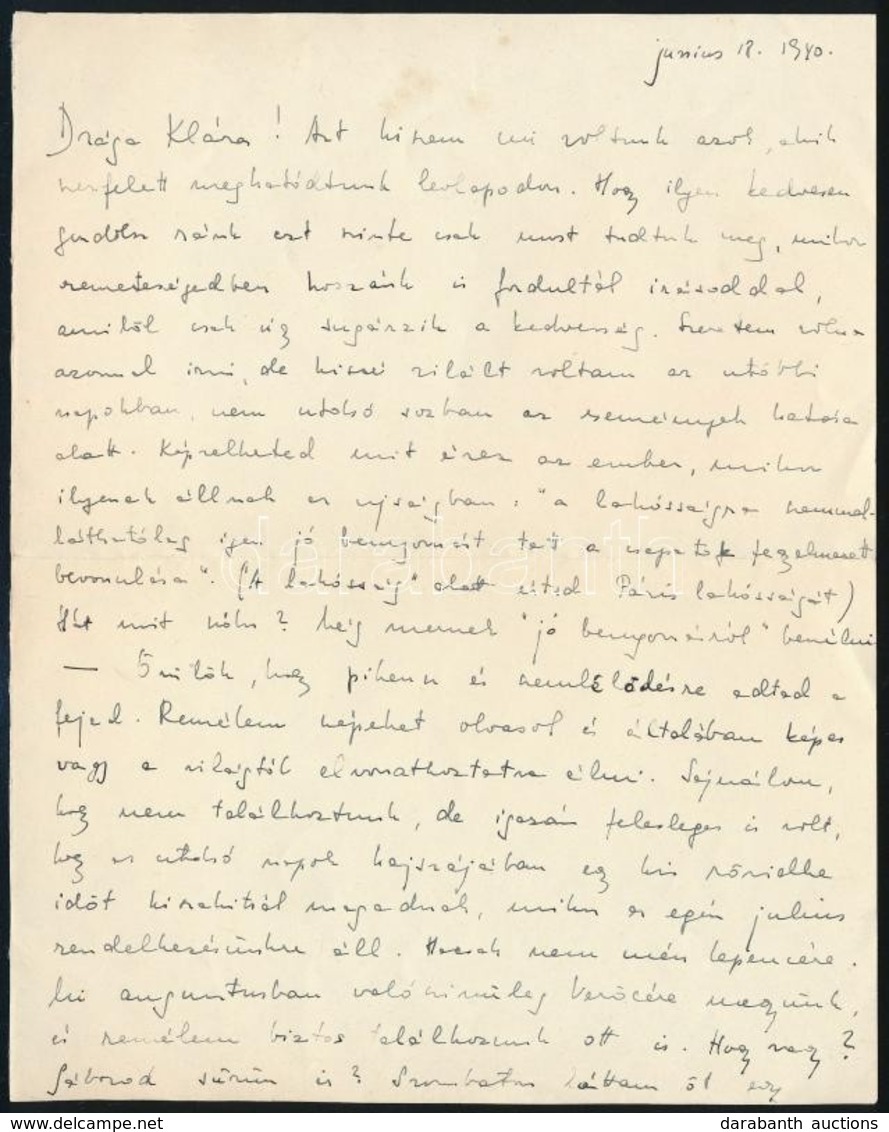 június 18. 1940.
Drága Klára! Azt hiszem mi voltunk azok, akik
szerfelett meghatódtunk levlapodon. Hogy ilyen kedvesen
gondolsz ránk ezt szinte csak most tudtuk meg, mikor
remeteségedben hozzánk is fordultál irásoddal,
amitől csak úgy sugárzik a kedvesség. Szerettem volna
azonnal irni, de kissé zilált voltam az utóbbi
napokban, nem utolsó sorban az események hatása
alatt. Képzelheted mit érez az ember, mikor
ilyenek állnak az ujságban: "a lakósságra szemmel-
láthatólag igen jó benyomást tett a csapatok fegyelmezett
bevonulása". ("A lakósság" alatt értsd Páris lakósságát)
Hát mit szólsz? Még mernek "jó benyomásról" beszélni
— Örülök, hogy pihenn és szemlélődésre adtad a
fejed. Remélem szépeket olvasol és általában képes
vagy a világtól elvonatkoztatva élni. Sajnálom,
hogy nem találkoztunk, de igazán felesleges is volt,
hogy az utolsó napok hajszájában egy kis rövidke
időt kiszakitsál magadnak, mikor az egész július
rendelkezésünkre áll. Hacsak nem mész Lepencére.
Mi augusztusban valószinüleg Verőcére megyünk,
és remélem biztos találkozunk ott is. Hogy vagy?
Gáborod sürün is? Szombaton láttam őt egy
darabanth
www.darabanth.com
darabanth auctions